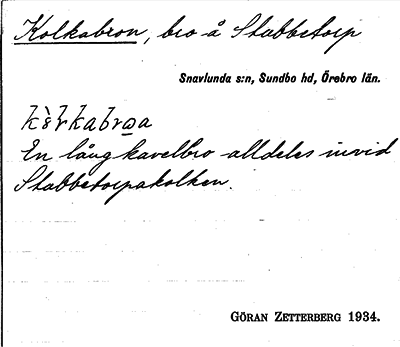 Kolkabron, bro å Stabbetorp
Snavlunda s:n, Sundbo hd, Örebro län.
En lång kavelbro alldeles invid
Stabbetorpakolken.
GÖRAN ZETTERBERG 1934.